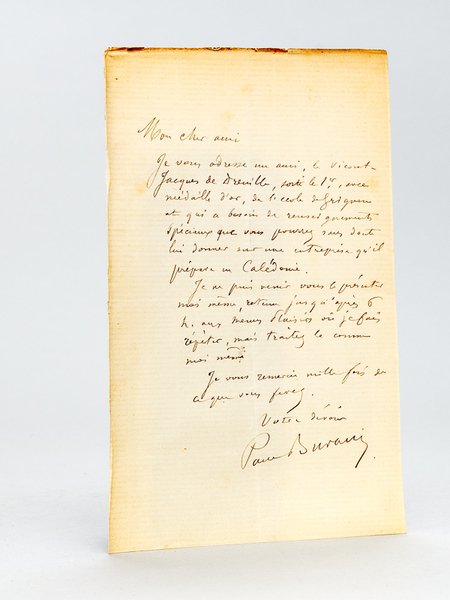 Mon cher ami
Je vous adresse un ami, le Vicomte
Jacques de Dreuille, sorti le 1er, avec
médaille d'or, de l'école de Grignon
et qui a besoin de renseignements
spéciaux que vous pourrez sans doute
lui donner sur une entreprise qu'il
prépare en Calédonie.
Je ne puis venir vous le présenter
moi même, retenu jusqu'après 6
h. aux menus Plaisirs où je fais
répéter, mais traitez le comme
moi même
Je vous remercie mille fois de
ce que vous ferez.
Votre dévoué
Paul Burani